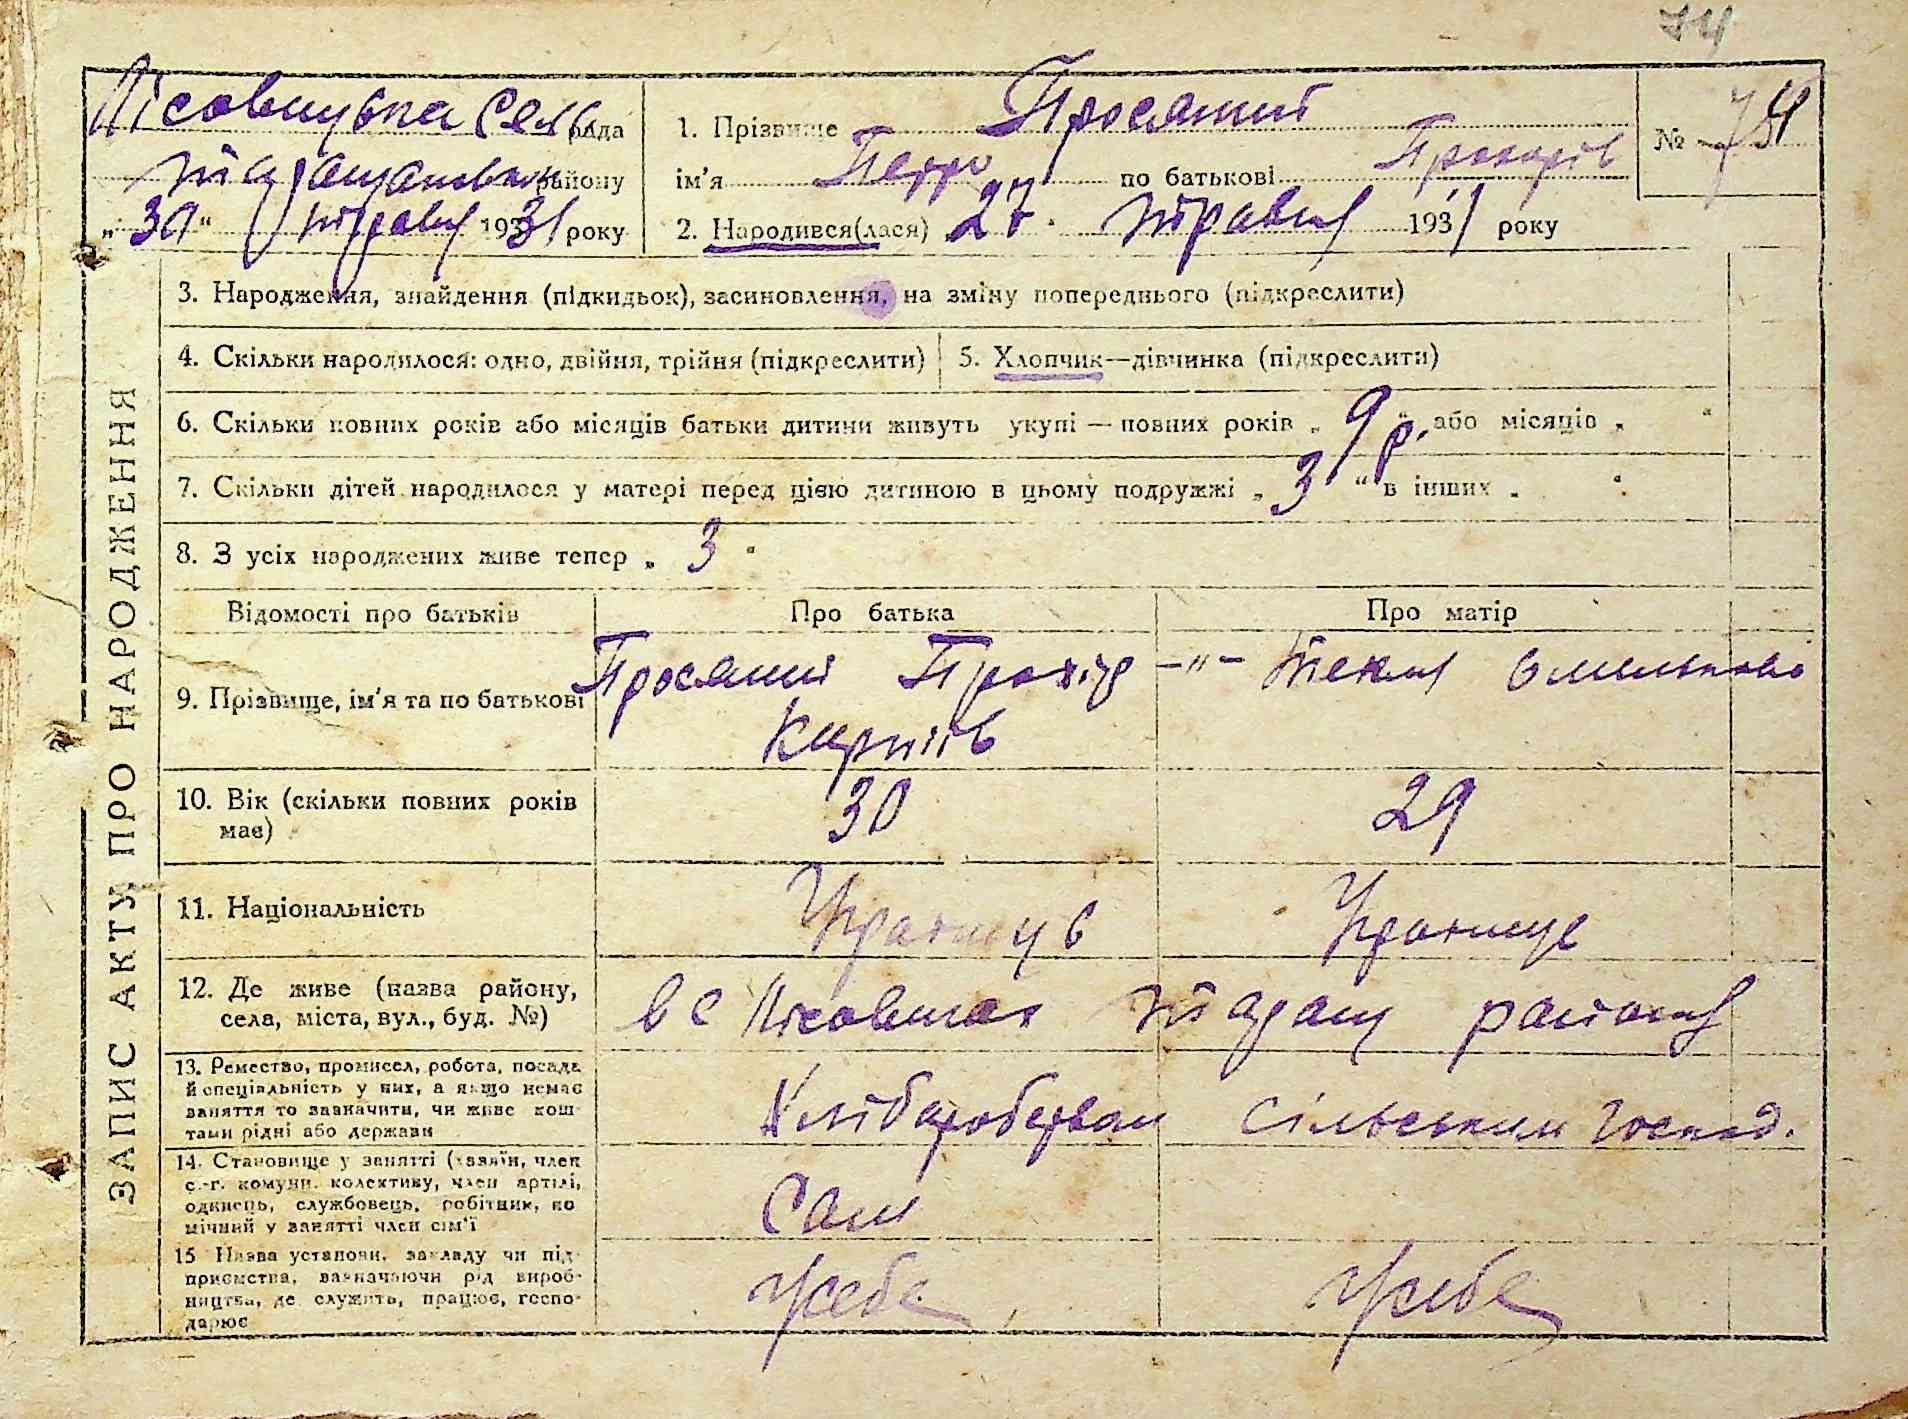 74
Лісовицька Сель рада
Таращанськ району
„ 30 “ травня 1931 року
1. Прізвище Просяний
ім'я Петро по батькові Прохорів
№ 74
2. Народився(лася) 27 травня 1931 року
3. Народження, знайдення (підкидьок), засиновлення, на зміну попереднього (підкреслити)
4. Скільки народилося: одно, двійня, трійня (підкреслити)
5. Хлопчик—дівчинка (підкреслити)
6. Скільки повних років або місяців батьки дитини живуть укупі — повних років „ 9 р. “ або місяців „ “
7. Скільки дітей народилося у матері перед цією дитиною в цьому подружжі „ 3 “ в інших „ “
8. З усіх народжених живе тепер „ 3 “
ЗАПИС АКТУ ПРО НАРОДЖЕННЯ
Відомості про батьків
Про батька
Про матір
9. Прізвище, ім'я та по батькові
Просяний Прохір
Карпів
–"– Текля Омелькова
10. Вік (скільки повних років
має)
30
29
11. Національність
Українець
Українце
12. Де живе (назва району,
села, міста, вул., буд. №)
в с Лісовичах Таращ району
13. Ремество, промисел, робота, посада
й спеціяльність у них, а якщо немає
заняття то зазначити, чи живе кош-
тами рідні або держави
Хліборобством сільським господ.
14. Становище у занятті (хазяїн, член
с.-г. комуни. колективу, член артілі,
одинець, службовець, робітник, по
мічний у занятті член сім'ї
Сам
15 Назва установи, закладу чи під-
приємства, зазначаючи рід вироб-
ництва, де служить, працює, госпо-
дарює
У себе
У себе